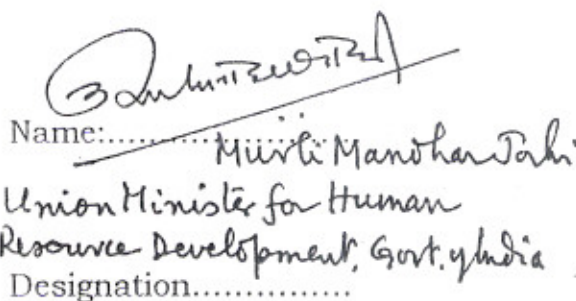 Name:....................
Murli Manohar Joshi
Union Minister for Human
Resource Development, Govt. of India
Designation...............